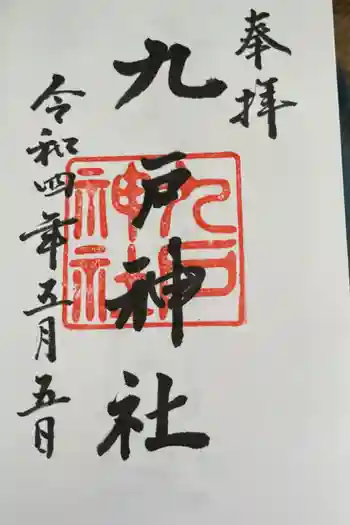 奉拝
九戸神社
九戸
神社
令和四年五月五日